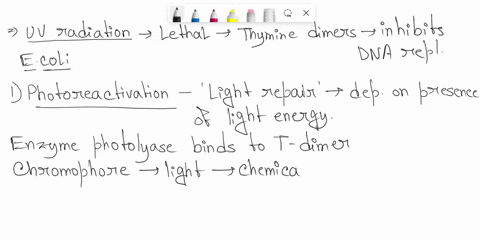 ⇒ UV radiation → Lethal → Thymine dimers → inhibits
DNA repl.
E.coli
1) Photoreactivation - 'Light repair' → dep. on presence
of light energy.
Enzyme photolyase binds to T-dimer
Chromophore → light → chemica